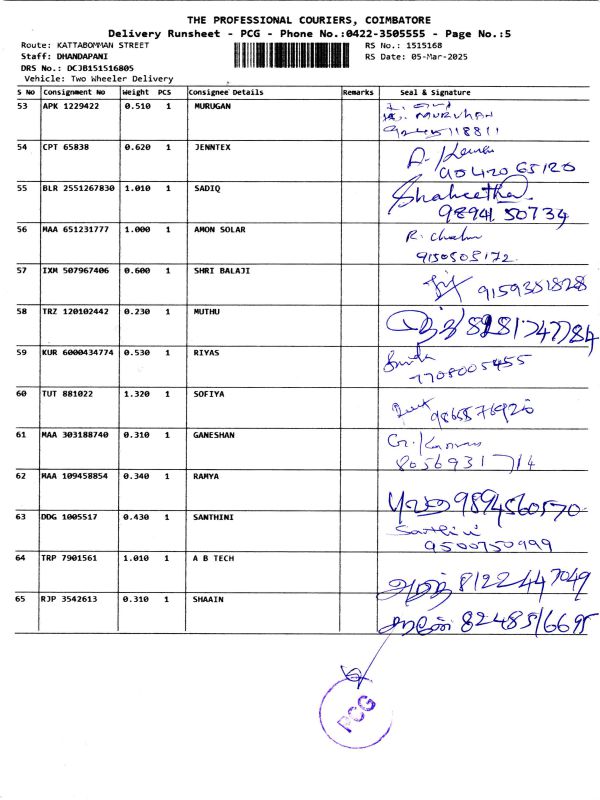 THE PROFESSIONAL COURIERS, COIMBATORE
Delivery Runsheet - PCG - Phone No.:0422-3505555 - Page No.:5
Route: KATTABOMMAN STREET RS No.: 1515168
Staff: DHANDAPANI RS Date: 05-Mar-2025
DRS No.: DCJB151516805
Vehicle: Two Wheeler Delivery
S No Consignment No Weight PCS Consignee Details Remarks Seal & Signature
53 APK 1229422 0.510 1 MURUGAN
MURUHAN
54 CPT 65838 0.620 1 JENNTEX
9042065120
55 BLR 2551267830 1.010 1 SADIQ
98941 50734
56 MAA 651231777 1.000 1 AMON SOLAR R.
9150505172
57 IXM 507967406 0.600 1 SHRI BALAJI
9159351828
58 TRZ 120102442 0.230 1 MUTHU
59 KUR 6000434774 0.530 1 RIYAS
7708005455
60 TUT 881022 1.320 1 SOFIYA
9865576926
61 MAA 303188740 0.310 1 GANESHAN
8056931714
62 MAA 109458854 0.340 1 RAMYA
9894560570
63 DDG 1005517 0.430 1 SANTHINI Santhini
9500750999
64 TRP 7901561 1.010 1 A B TECH
8122447049
65 RJP 3542613 0.310 1 SHAAIN
8248516695
PCG